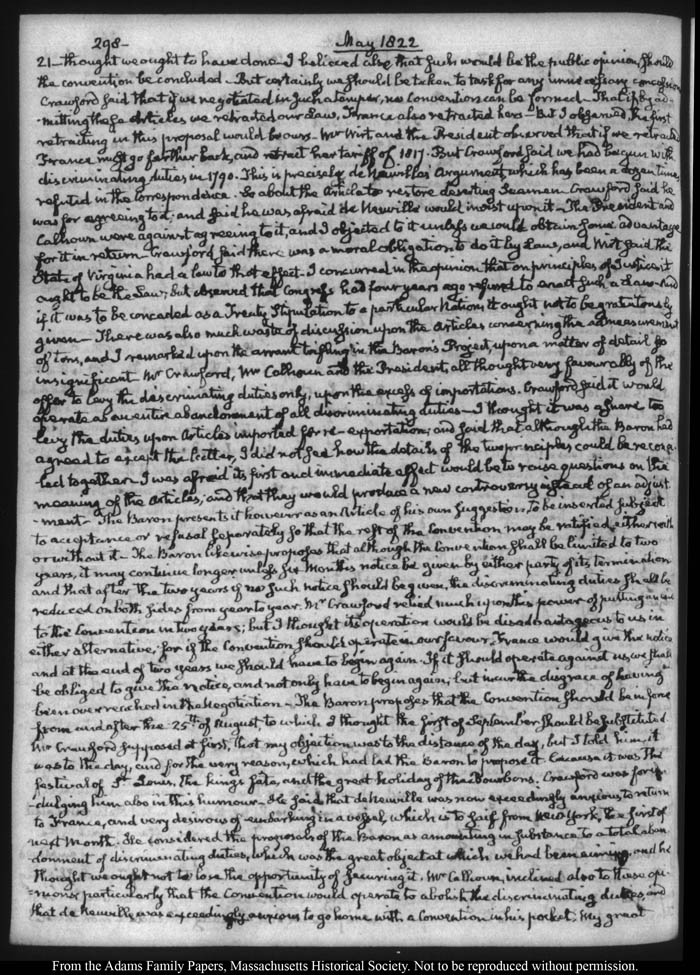 298–
May 1822
21– thought we ought to have done– I believed also that such would be the public opinion, should
the convention be concluded– But certainly we should be taken to task for any unnecessary concession
Crawford said that if we negotiated in such a temper, no Convention can be formed– That if by ad-
-mitting these Articles we retracted our Law, France also retracted hers– But I observed the first
retracting in this proposal would be ours– Mr Wirt and the President observed that if we retract
France must go farther back, and retract her tariff of 1817. But Crawford said we had begun with
discriminating duties in 1790. This is precisely de Neuville's Argument, which has been a dozen times
refuted in the Correspondence. So about the Article to restore deserting Seamen. Crawford said he
was for agreeing to it; and said he was afraid de Neuville would insist upon it– The President and
Calhoun were against agreeing to it, and I objected to it unless we could obtain some advantage
for it in return– Crawford said there was a moral obligation to do it by Law, and Wirt said the
State of Virginia had a law to that effect– I concurred in the opinion that on principles of Justice it
ought to be the Law; but observed that Congress had four years ago refused to enact such a Law– And
if it was to be conceded as a Treaty Stipulation to a particular Nation, it ought not to be gratuitously
given– There was also much waste of discussion upon the Articles concerning the admeasurement
of tons, and I remarked upon the arrant trifling in the Baron's Project, upon a matter of detail so
insignificant– Mr Crawford, Mr Calhoun and the President, all thought very favourably of the
offer to levy the discriminating duties only, upon the excess of importations. Crawford said it would
operate as an entire abandonment of all discriminating duties– I thought it was a snare to
levy the duties upon Articles imported for re-exportation; and said that although the Baron had
agreed to except the latter, I did not see how the details of the two principles could be recon-
-led together– I was afraid its first and immediate effect would be to raise questions on the
meaning of the Articles; and that they would produce a new controversy instead of an adjust
-ment– The Baron presents it however as an Article of his own suggestion, to be inserted subject
to acceptance or refusal separately so that the rest of the Convention may be ratified, either with
or without it– The Baron likewise proposes that although the Convention shall be limited to two
years, it may continue longer unless six Months notice be given by either party of its termination
and that after the two years if no such notice should be given, the discriminating duties shall be
reduced on both sides from year to year. Mr Crawford relied much upon this power of putting an end
to the Convention in two years; but I thought its operation would be disadvantageous to us in
either alternative, for if the Convention should operate in our favour, France would give the notice
and at the end of two years we should have to begin again. If it should operate against us, we shall
be obliged to give the notice, and not only have to begin again, but incur the disgrace of having
been overreached in the Negotiation– The Baron proposes that the Convention should be in force
from and after the 25th of August, to which I thought the first of September should be substituted.
Mr Crawford supposed at first, that my objection was to the distance of the day, but I told him, it
was to the day, and for the very reason, which had led the Baron to propose it. Because it was the
festival of St Louis, The King's fete, and the great holiday of the Bourbons. Crawford was for in-
-dulging him also in this humour– He said that de Neuville was now exceedingly anxious to return
to France, and very desirous of embarking in a vessel, which is to sail from New York, the first of
next Month. He considered the proposals of the Baron as amounting in substance to a total aban
-donment of discriminating duties, which was the great object at which we had been aiming, and he
thought we ought not to lose the opportunity of securing it. Mr Calhoun, inclined also to these opi-
-nions; particularly that the Convention would operate to abolish the discriminating duties, and
that de Neuville was exceedingly anxious to go home with a Convention in his pocket; My great
From the Adams Family Papers, Massachusetts Historical Society. Not to be reproduced without permission.